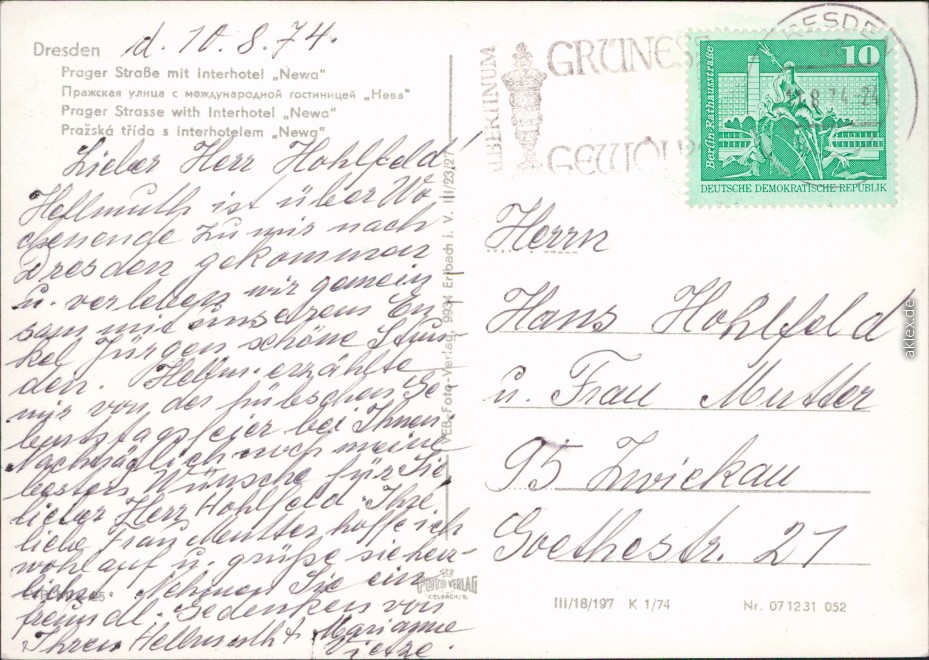 Dresden d. 10.8.74.
Prager Straße mit Interhotel „Newa"
Пражская улица с международной гостиницей „Нева"
Prager Strasse with Interhotel „Newa"
Pražská třída s interhotelem „Newa"
Lieber Herr Hohlfeld!
Hellmuth ist über Wo-
chenende zu mir nach
Dresden gekommen
u. verleben wir gemein
sam mit unserem En-
kel Jürgen schöne Stun-
den. Hellm. erzählte
mir von der hübschen Ge-
burtstagsfeier bei Ihnen.
Nachträglich noch meine
besten Wünsche für Sie
lieber Herr Hohlfeld. Ihre
liebe Frau Mutter hoffe ich
wohlauf u. grüße sie herz-
lichst. Nehmen Sie ein
freundl. Gedenken von
Ihren Hellmuth & Marianne
VEB Foto-Verlag, 9934 Erlbach i. V. III/23/27
VERLAG
ALBERTINUM
GRÜNES
GEWÖLBE
DRESDEN
8.74-24
Berlin-Rathausstraße
10
DEUTSCHE DEMOKRATISCHE REPUBLIK
Herrn
Hans Hohlfeld
u. Frau Mutter
95 Zwickau
Goethestr. 21
III/18/197 K 1/74 Nr. 071231 052
aklex.de